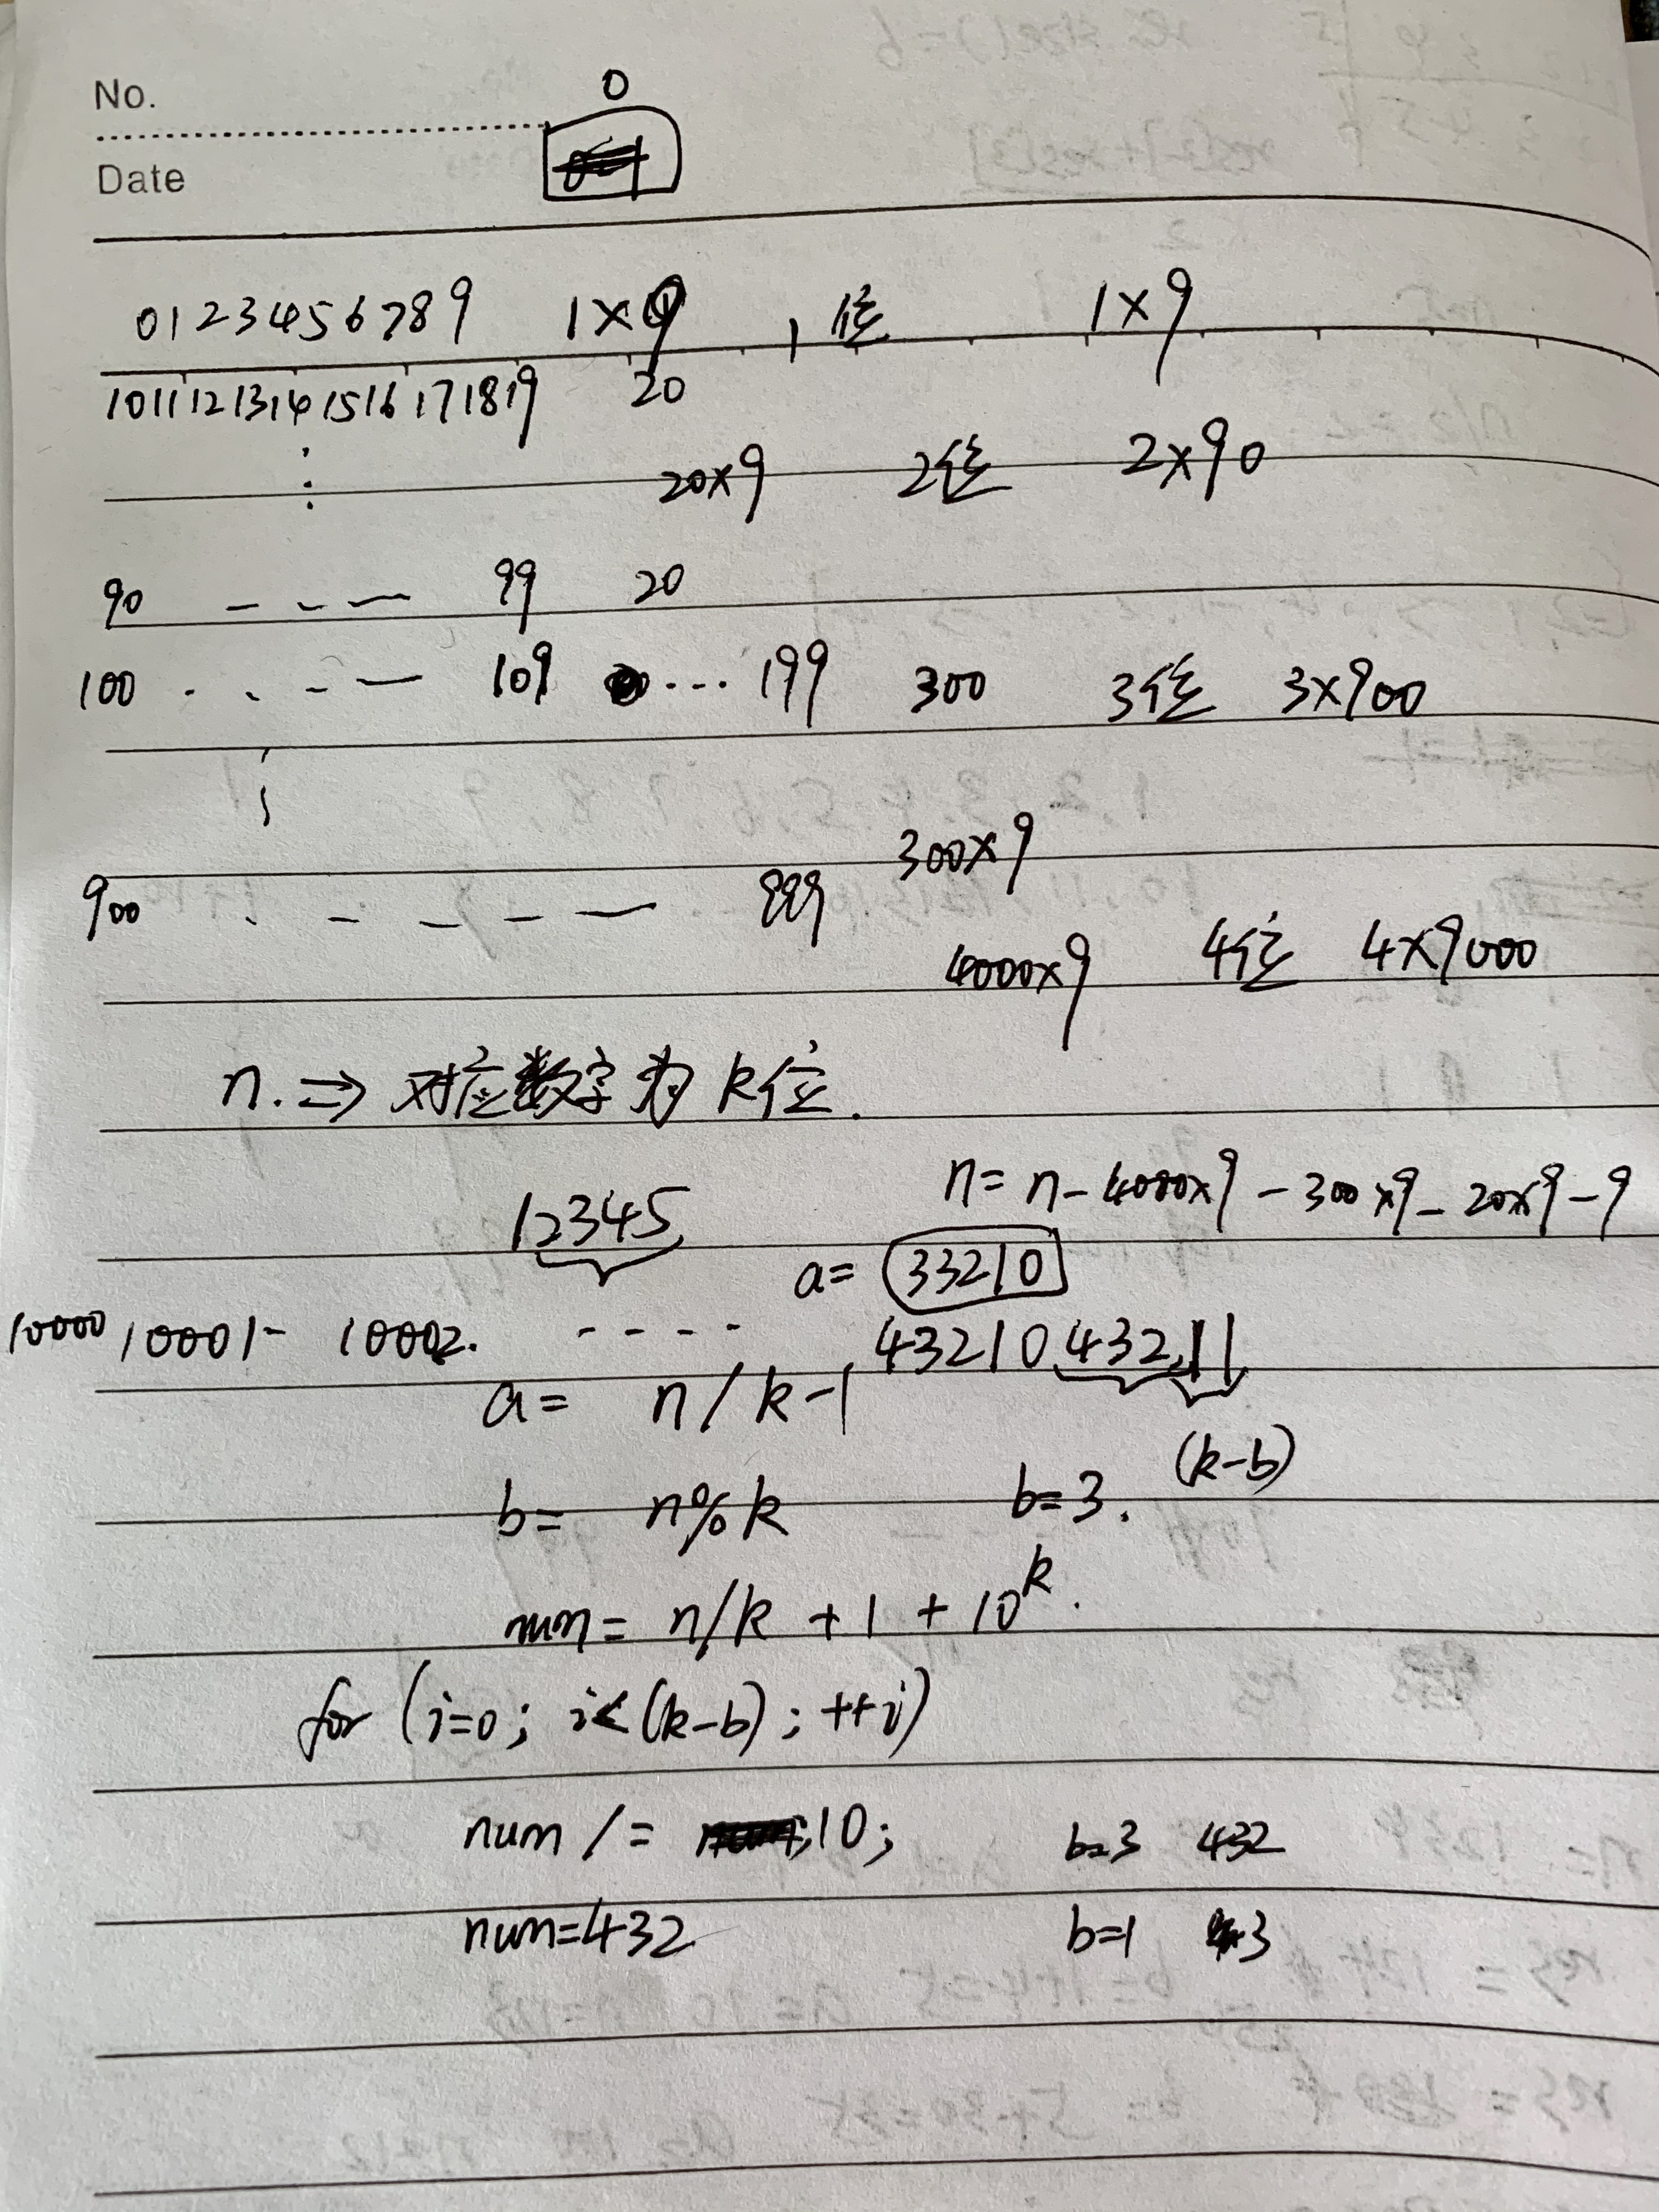 No.
0
Date
0123456789 1×9 1位 1×9
10111213141516171819 20
20×9 2位 2×90
90 99 20
100 109 ... 199 300 3位 3×900
300×9
900 999
4000×9 4位 4×9000
n. ⇒ 对应数字为k位.
n= n-4000×9-300×9-20×9-9
12345
a= 33210
10000 10001- 10002. ---- 43210 43211
a= n/k-1
(k-b)
b= n%k b=3.
num= n/k +1 + 10^k.
for (i=0; i<(k-b); ++i)
num /= 10; b=3 432
num=432 b=1